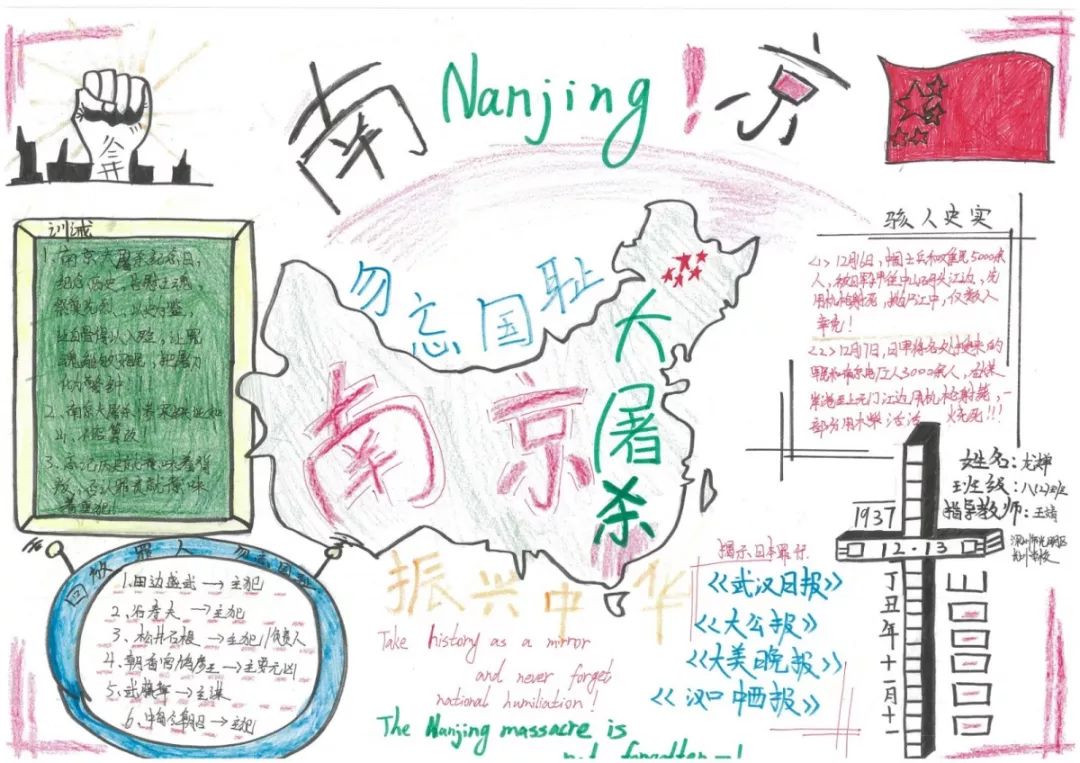 南 Nanjing ! 京
勿忘国耻
南京
大屠杀
振兴中华
训诫
1. 南京大屠杀纪念日,
2. 南京大屠杀
骇人史实
<1> 12月16日,中国士兵和难民5000余
人,被日军押往中山码头江边,先
用机枪射死,抛尸江中,仅数人
幸免!
<2> 12月17日,日军将各处搜来的
军民和南京电厂工人3000余人,在煤
岸港至上元门江边用机枪射毙,一
部分用木柴活活烧死!!!
姓名:尤婵
班级:八(2)班
指导教师:王靖
1937
12·13
丁丑年十一月十一
罪人
勿忘国耻
1. 田边盛武→主犯
2. 谷寿夫→主犯
3. 松井石根→主犯/负责人
4. 朝香宫鸠彦王→主要元凶
5. 武藤章→主谋
6. 中岛今朝吾→主犯
Take history as a mirror
and never forget
national humiliation!
The Nanjing massacre is
not forgotten—!
揭示日本罪行
《武汉日报》
《大公报》
《大美晚报》
《汉口中西报》